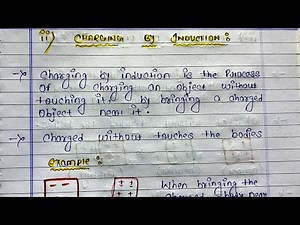 ii) CHARGING BY INDUCTION :
→ Charging by induction is the Process
Of charging an object without
touching it, by bringing a charged
Object near it.
→ Charged without touches the bodies
Example :
- -
+ +
When bringing the